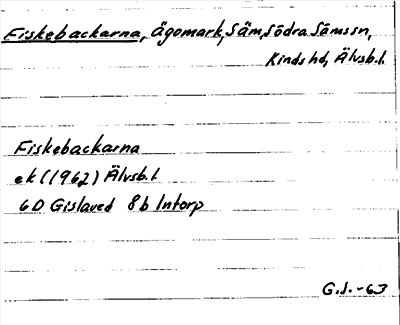 Fiskebackarna, Ägomark, Säm, Södra Sämssn,
Kinds hd, Älvsb.l.
Fiskebackarna
ek (1962) Älvsb.l
6D Gislaved 8b Intorp
G.J. -63